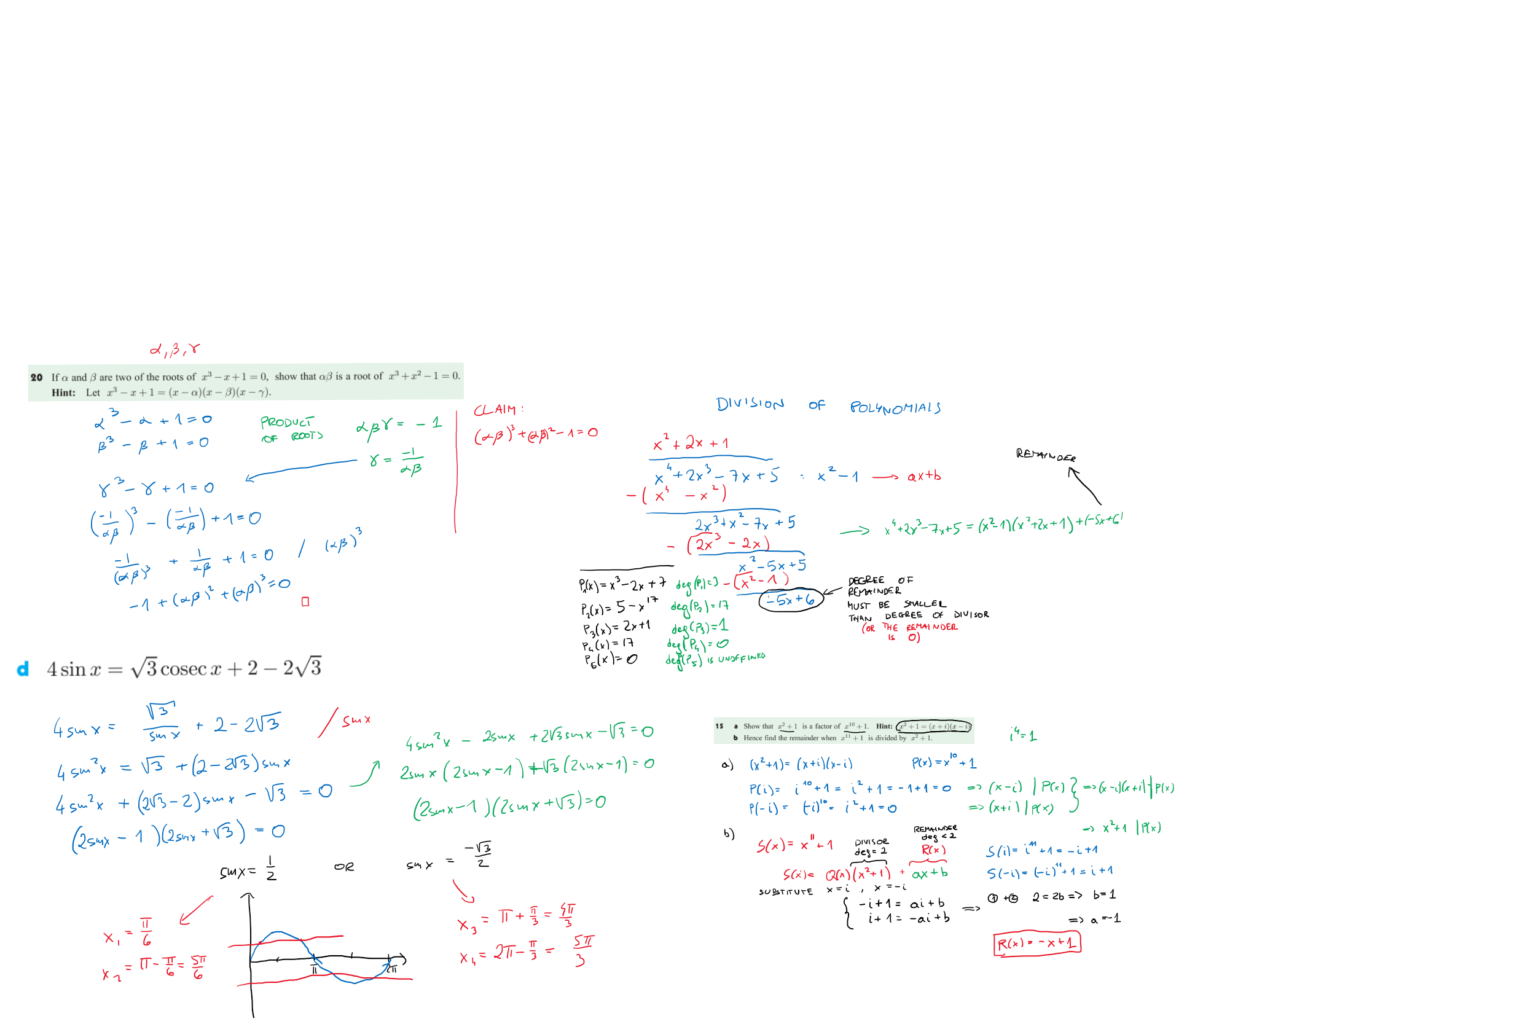 α, β, γ
20 If α and β are two of the roots of x³ − x + 1 = 0, show that αβ is a root of x³ + x² − 1 = 0.
Hint: Let x³ − x + 1 = (x − α)(x − β)(x − γ).
α³ − α + 1 = 0
β³ − β + 1 = 0
PRODUCT OF ROOTS
αβγ = −1
γ = −1/αβ
γ³ − γ + 1 = 0
(−1/αβ)³ − (−1/αβ) + 1 = 0
−1/(αβ)³ + 1/αβ + 1 = 0 / (αβ)³
−1 + (αβ)² + (αβ)³ = 0 □
CLAIM:
(αβ)³ + (αβ)² − 1 = 0
DIVISION OF POLYNOMIALS
x² + 2x + 1
x⁴ + 2x³ − 7x + 5 : x² − 1 → ax+b
−(x⁴ − x²)
2x³ + x² − 7x + 5
−(2x³ − 2x)
x² − 5x + 5
−(x² − 1)
−5x + 6
REMAINDER
→ x⁴ + 2x³ − 7x + 5 = (x²−1)(x²+2x+1) + (−5x+6)
DEGREE OF
REMAINDER
MUST BE SMALLER
THAN DEGREE OF DIVISOR
(OR THE REMAINDER
IS 0)
P₁(x) = x³ − 2x + 7 deg(P₁) = 3
P₂(x) = 5 − x¹⁷ deg(P₂) = 17
P₃(x) = 2x + 1 deg(P₃) = 1
P₄(x) = 17 deg(P₄) = 0
P₅(x) = 0 deg(P₅) IS UNDEFINED
d 4 sin x = √3 cosec x + 2 − 2√3
4 sin x = √3/sin x + 2 − 2√3 / sin x
4 sin²x = √3 + (2 − 2√3) sin x
4 sin²x + (2√3 − 2) sin x − √3 = 0
(2 sin x − 1)(2 sin x + √3) = 0
4 sin²x − 2 sin x + 2√3 sin x − √3 = 0
2 sin x (2 sin x − 1) + √3 (2 sin x − 1) = 0
(2 sin x − 1)(2 sin x + √3) = 0
sin x = 1/2 OR sin x = −√3/2
x₁ = π/6
x₂ = π − π/6 = 5π/6
π 2π
x₃ = π + π/3 = 4π/3
x₄ = 2π − π/3 = 5π/3
15 a Show that x² + 1 is a factor of x¹⁰ + 1. Hint: x² + 1 = (x + i)(x − i)
b Hence find the remainder when x¹¹ + 1 is divided by x² + 1.
i⁴ = 1
a) (x²+1) = (x+i)(x−i) P(x) = x¹⁰ + 1
P(i) = i¹⁰ + 1 = i² + 1 = −1 + 1 = 0 ⇒ (x−i) | P(x)
P(−i) = (−i)¹⁰ = i² + 1 = 0 ⇒ (x+i) | P(x)
} ⇒ (x−i)(x+i) | P(x)
⇒ x²+1 | P(x)
b) S(x) = x¹¹ + 1
DIVISOR
deg = 2
REMAINDER
deg < 2
R(x)
S(x) = Q(x)(x²+1) + ax+b
SUBSTITUTE x = i, x = −i
S(i) = i¹¹ + 1 = −i + 1
S(−i) = (−i)¹¹ + 1 = i + 1
−i + 1 = ai + b
i + 1 = −ai + b
⇒ ① + ② 2 = 2b ⇒ b = 1
⇒ a = −1
R(x) = −x + 1